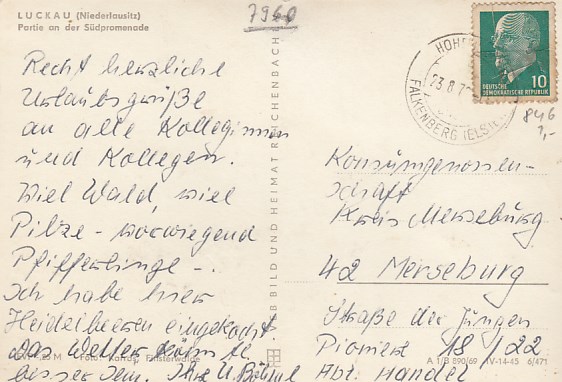 LUCKAU (Niederlausitz)
Partie an der Südpromenade
7960
Recht herzliche
Urlaubsgrüße
an alle Kolleginnen
und Kollegen.
Viel Wald, viel
Pilze - vorwiegend
Pfifferlinge -.
Ich habe hier
Heidelbeeren eingekocht
Das Wetter könnte
besser sein. Ihre U.
VEB BILD UND HEIMAT REICHENBACH
HOHE
23.8.7
FALKENBERG (ELSTER)
10
DEUTSCHE
DEMOKRATISCHE REPUBLIK
846
1,-
Konsumgenossen-
schaft
Kreis Merseburg -
42 Merseburg
Straße der Jungen
Pioniere 18/22
Abt. Handel
Foto: Finsterwalde
A 1/B 890/69 IV-14-45 6/471